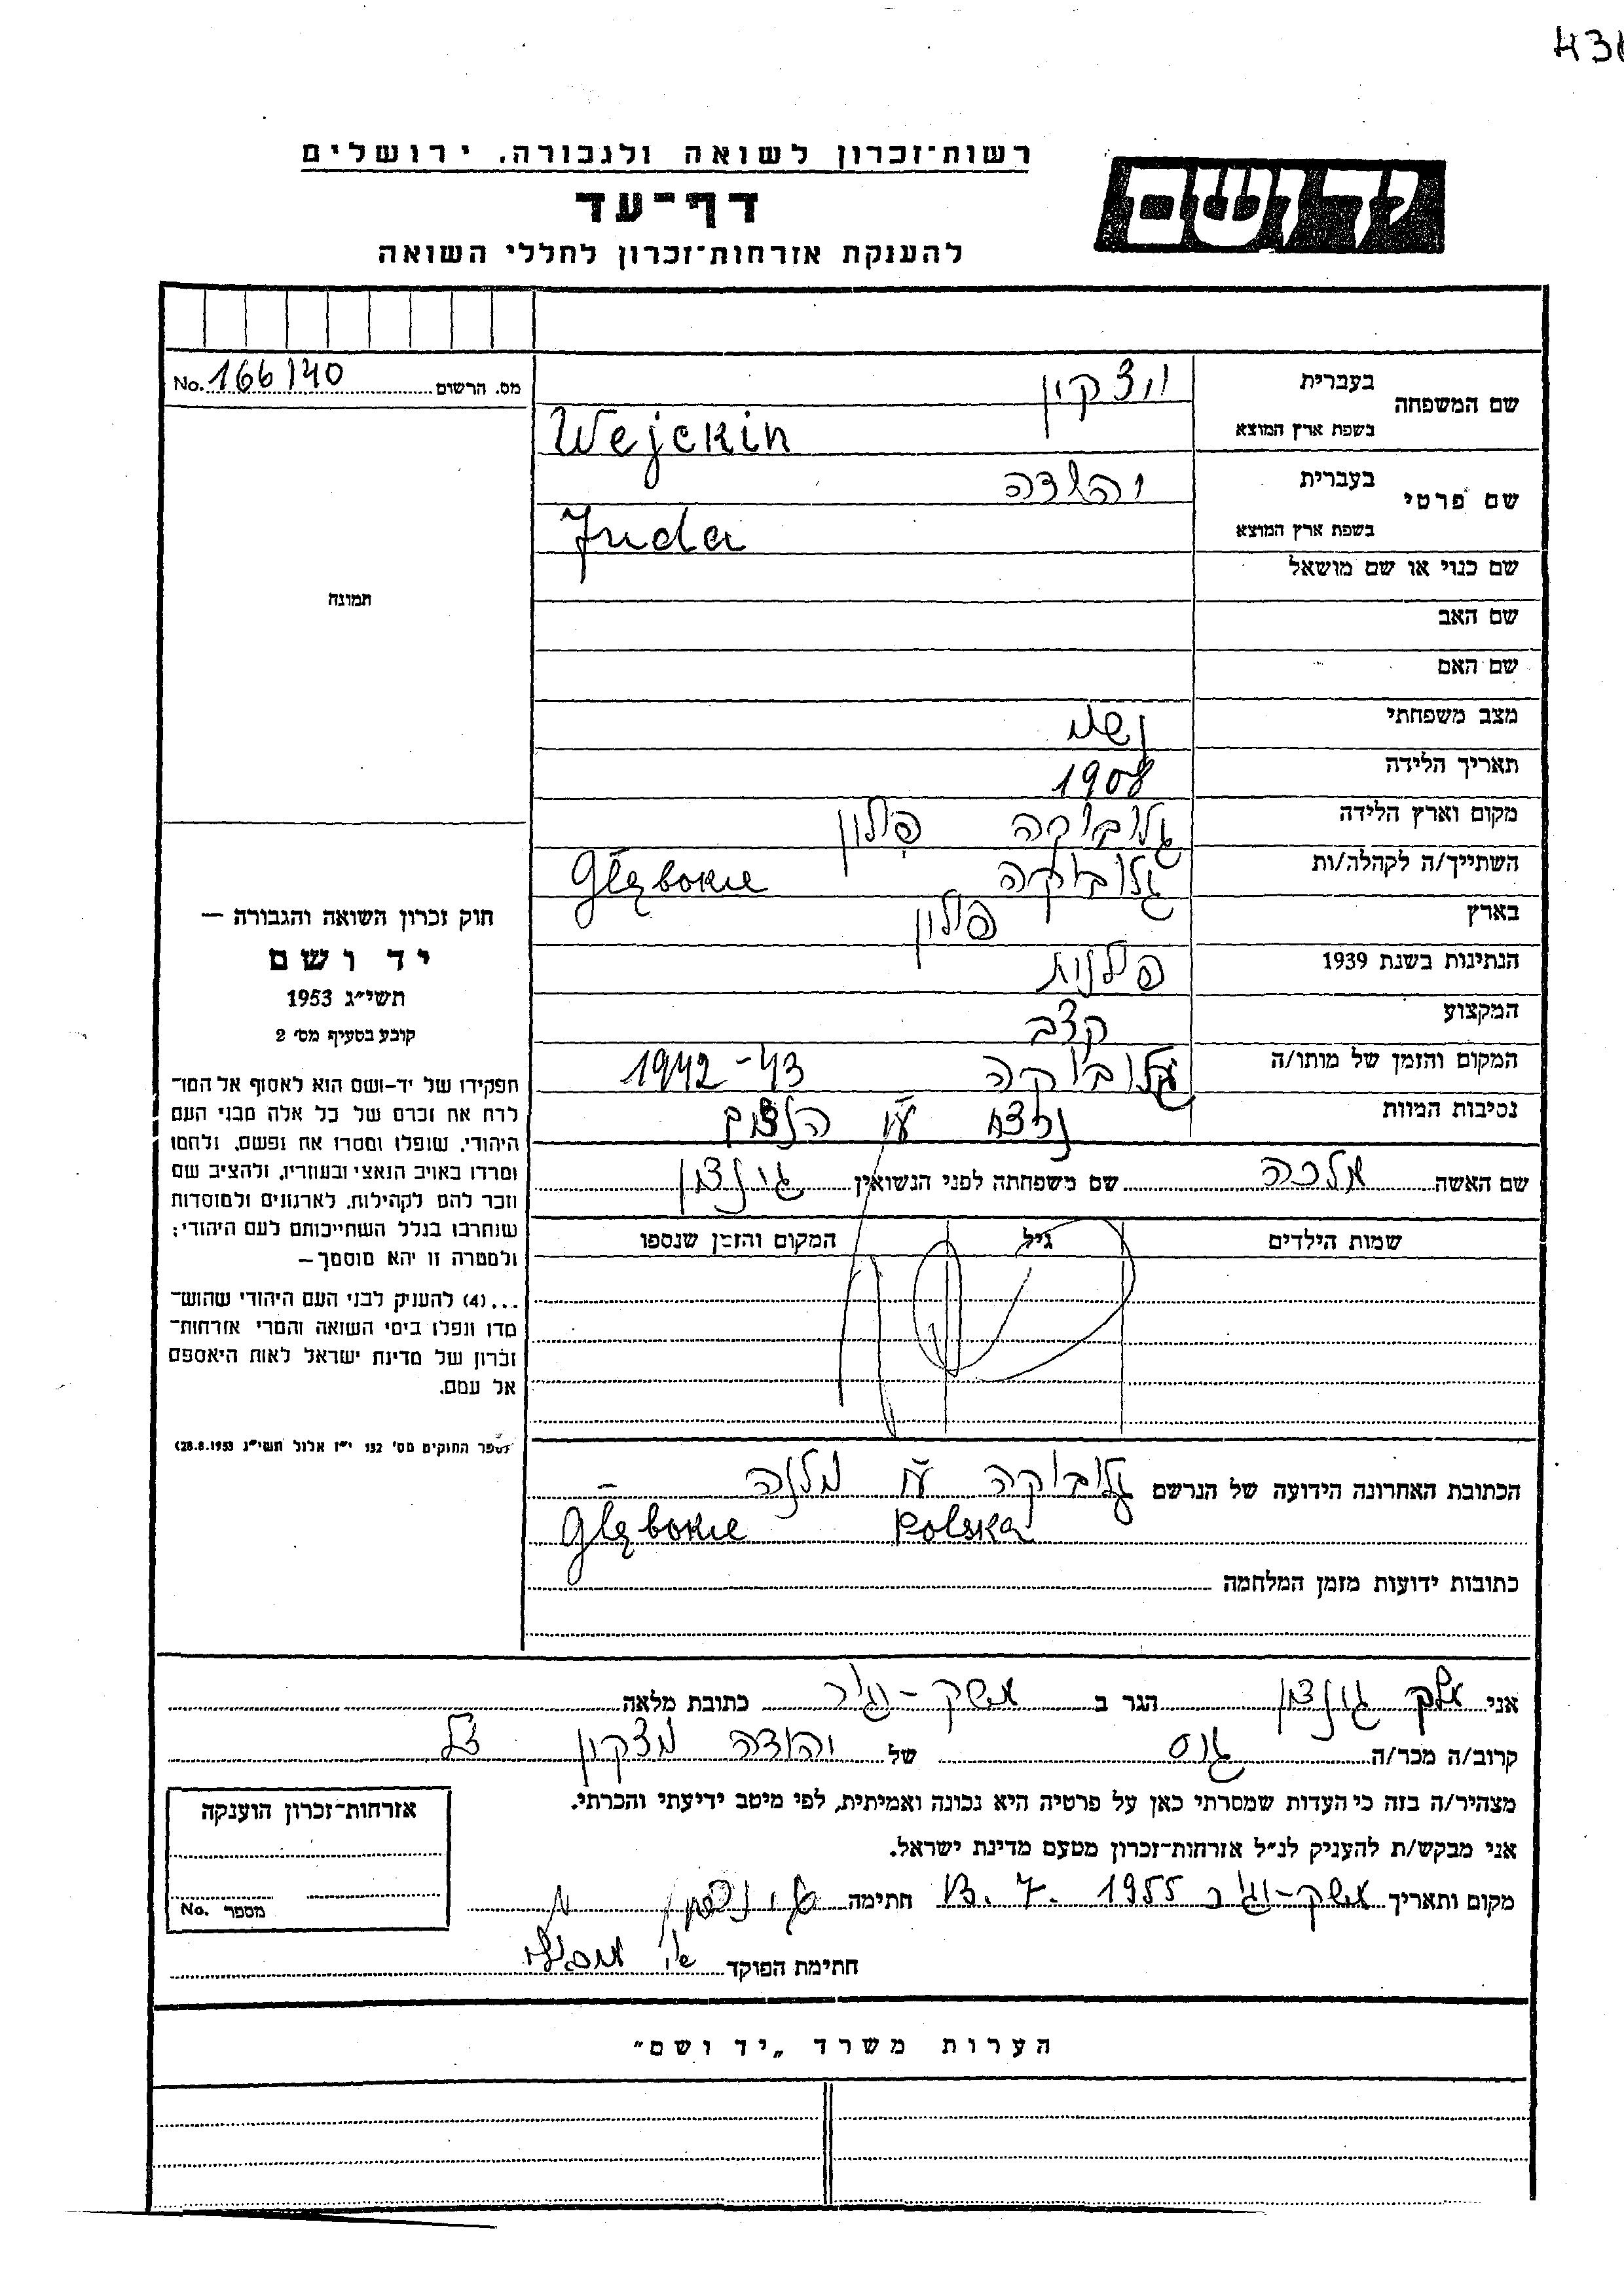 רשות־זכרון לשואה ולגבורה, ירושלים
יד ושם
דף־עד
להענקת אזרחות־זכרון לחללי השואה
מס. הרשום No. 166/40
שם המשפחה
בעברית
בשפת ארץ המוצא Wejckin
שם פרטי
בעברית יהודה
בשפת ארץ המוצא Juda
שם כנוי או שם מושאל
שם האב
שם האם
מצב משפחתי נשוי
תאריך הלידה 1908
מקום וארץ הלידה גלובוקה פולין
השתייך/ה לקהלה/ות גלובוקה Głębokie
בארץ פולין
הנתינות בשנת 1939 פולנית
המקצוע קצב
המקום והזמן של מותו/ה גלובוקה 1942-43
נסיבות המוות נרצח ע"י
שם האשה מלכה שם משפחתה לפני הנשואין
שמות הילדים גיל המקום והזמן שנספו
הכתובת האחרונה הידועה של הנרשם גלובוקה
Głębokie Polska
כתובות ידועות מזמן המלחמה
תמונה
חוק זכרון השואה והגבורה —
יד ושם
תשי״ג 1953
קובע בסעיף מס׳ 2
תפקידו של יד-ושם הוא לאסוף אל המו־
לדת את זכרם של כל אלה מבני העם
היהודי, שנפלו ומסרו את נפשם, נלחמו
ומרדו באויב הנאצי ובעוזריו, ולהציב שם
וזכר להם לקהילות, לארגונים ולמוסדות
שנחרבו בגלל השתייכותם לעם היהודי;
ולמטרה זו יהא מוסמך—
...(4) להעניק לבני העם היהודי שהוש־
מדו ונפלו בימי השואה והמרי אזרחות־
זכרון של מדינת ישראל לאות היאספם
אל עמם.
(ספר החוקים מס׳ 132 י״ז אלול תשי״ג 28.8.1953)
אני הגר ב כתובת מלאה
קרוב/ה מכר/ה גיס של יהודה ז"ל
מצהיר/ה בזה כי העדות שמסרתי כאן על פרטיה היא נכונה ואמיתית, לפי מיטב ידיעתי והכרתי.
אני מבקש/ת להעניק לנ״ל אזרחות־זכרון מטעם מדינת ישראל.
מקום ותאריך 13. 7. 1955 חתימה
חתימת הפוקד
אזרחות־זכרון הוענקה
מספר No.
הערות משרד „יד ושם״